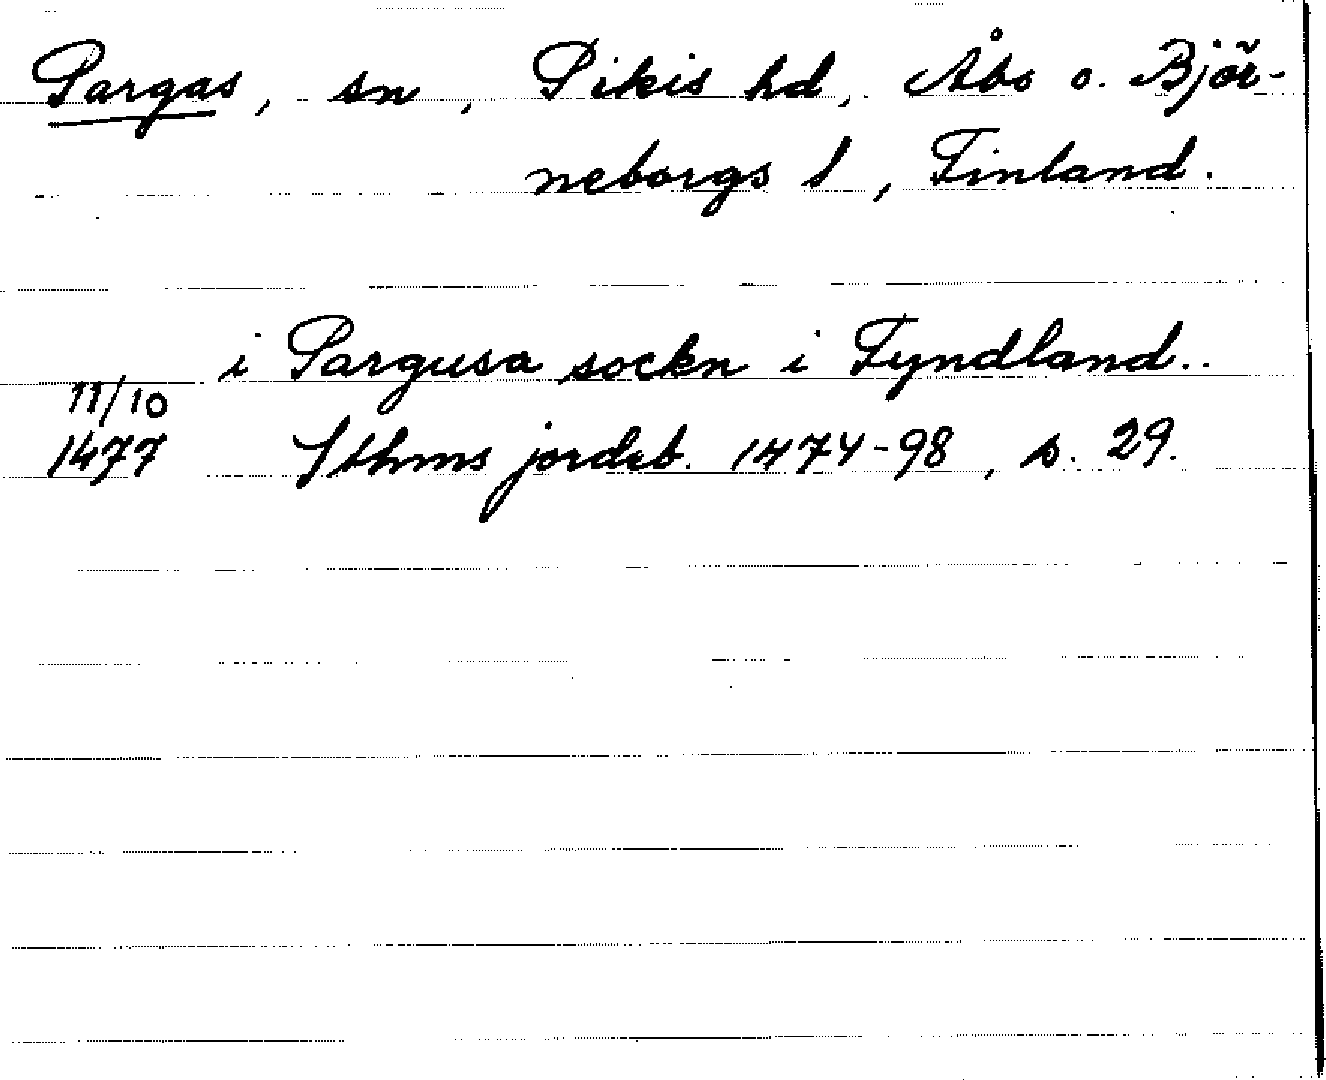 Pargas, sn, Pikis hd, Åbo o. Björ-
neborgs l, Finland.
i Pargusa sockn i Fyndland..
11/10
1477 Sthms jordeb. 1474-98, s. 29.